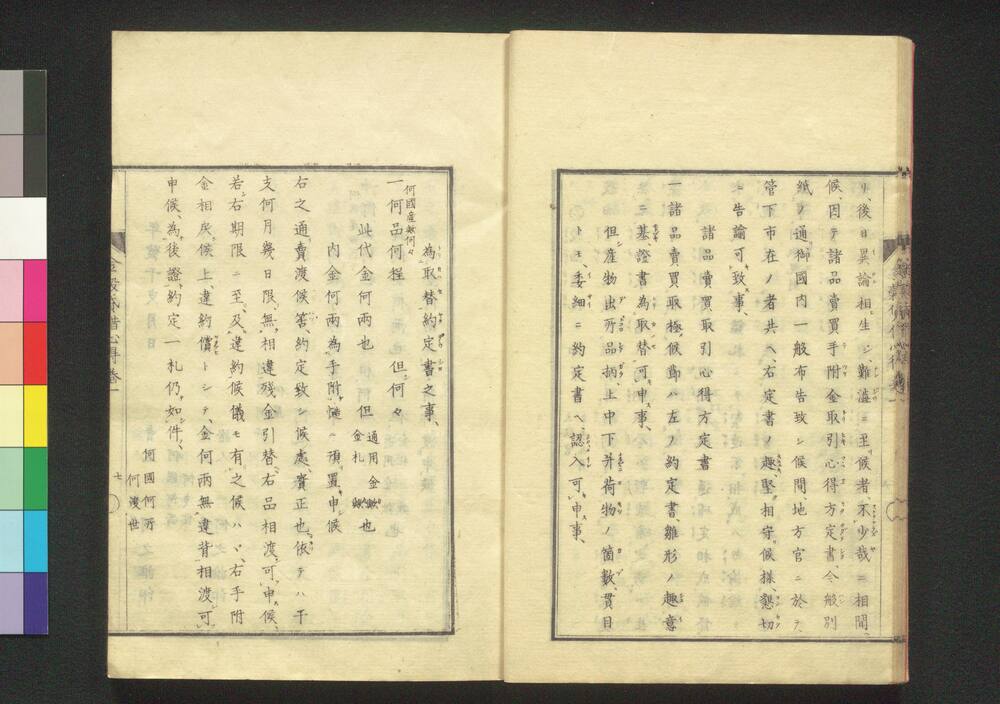 リ、後日異論相生シ、難澁ニ至候者、不少哉ニ相聞、
候、因テ諸品賣買手附金取引心得方定書、今般別
紙ノ通御國内一般布告致シ候間、地方官ニ於テ、
管下市在ノ者共ヘ、右定書ノ趣、堅相守候様、懇切
ニ告諭可致事、
諸品賣買取引心得方定書
一諸品賣買取極候節ハ、左ノ約定書、雛形ノ趣意
ニ基、證書為取替可申事、
但産物出所品柄、上中下并荷物ノ箇數、貫目
トモ、委細ニ約定書ヘ、認入可申事、
為取替約定書之事、
何國産數何々
一何品何程
此代金何兩也 但何々
内金何兩為手附慥ニ預置申候 但 通用金歟 金札歟 也
右之通、賣渡候筈、約定致シ候處、實正也、依テハ、干
支何月幾日限、無相違残金引替、右品相渡可申候、
若右期限ニ至、及違約候儀モ有之候ハヽ、右手附
金相戻候上、違約償トシテ、金何兩無違背相渡可
申候、為後證、約定一札仍如件、
何國何所
何渡世
七